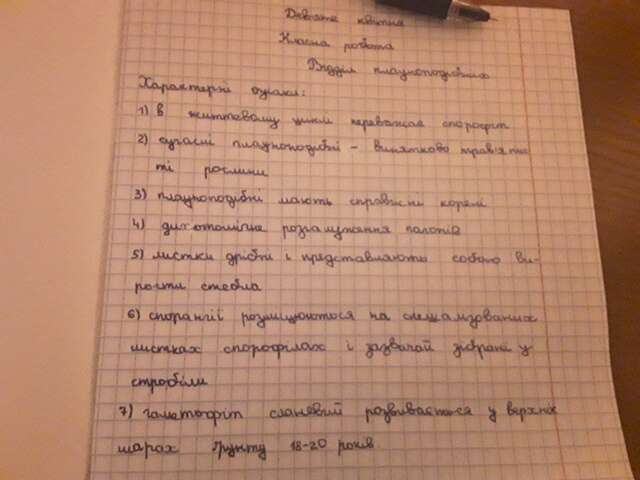 Дев'яте квітня
Класна робота
Відділ плауноподібних
Характерні ознаки:
1) в життєвому циклі переважає спорофіт
2) сучасні плауноподібні – винятково трав'янис
ті рослини
3) плауноподібні мають справжні корені
4) дихотомічне розгалуження пагонів
5) листки дрібні і представляють собою ви-
рости стебла
6) спорангії розміщюються на спеціалізованих
листках спорофілах і зазвичай зібрані у
стробіли
7) гаметофіт сланевий розвивається у верхніх
шарах ґрунту 18-20 років